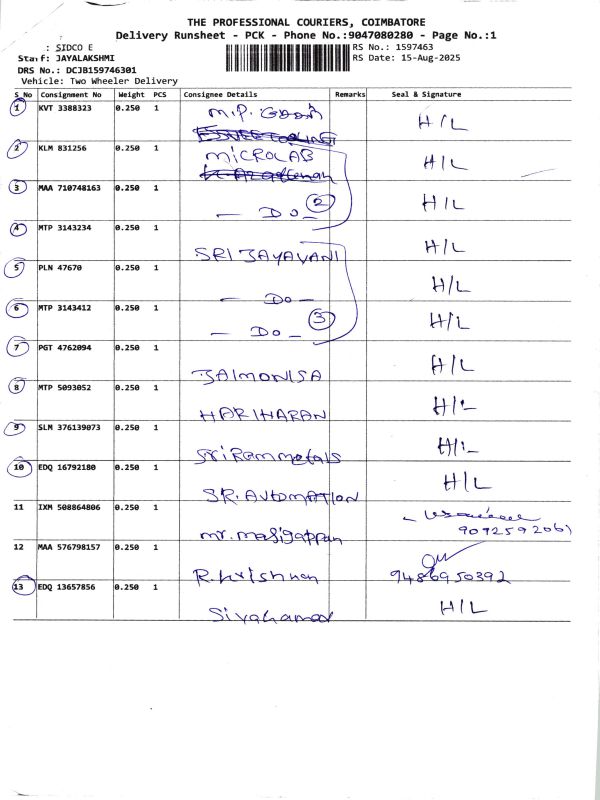 THE PROFESSIONAL COURIERS, COIMBATORE
Delivery Runsheet - PCK - Phone No.:9047080280 - Page No.:1
: SIDCO E
RS No.: 1597463
Staff: JAYALAKSHMI
RS Date: 15-Aug-2025
DRS No.: DCJB159746301
Vehicle: Two Wheeler Delivery
S_No Consignment No Weight PCS Consignee Details Remarks Seal & Signature
1 KVT 3388323 0.250 1 M.P. H/L
2 KLM 831256 0.250 1 MICROLAB H/L
3 MAA 710748163 0.250 1 — Do — 2 H/L
4 MTP 3143234 0.250 1 SRI JAYAVANI H/L
5 PLN 47670 0.250 1 — Do — H/L
6 MTP 3143412 0.250 1 — Do — 3 H/L
7 PGT 4762094 0.250 1 JAIMONISA H/L
8 MTP 5093052 0.250 1 HARIHARAN H/L
9 SLM 376139073 0.250 1 Sri Ram metals H/L
10 EDQ 16792180 0.250 1 SR. AUTOMATION H/L
11 IXM 508864806 0.250 1 mr. 9092592061
12 MAA 576798157 0.250 1 R. krishnan 9486950392
13 EDQ 13657856 0.250 1 H/L